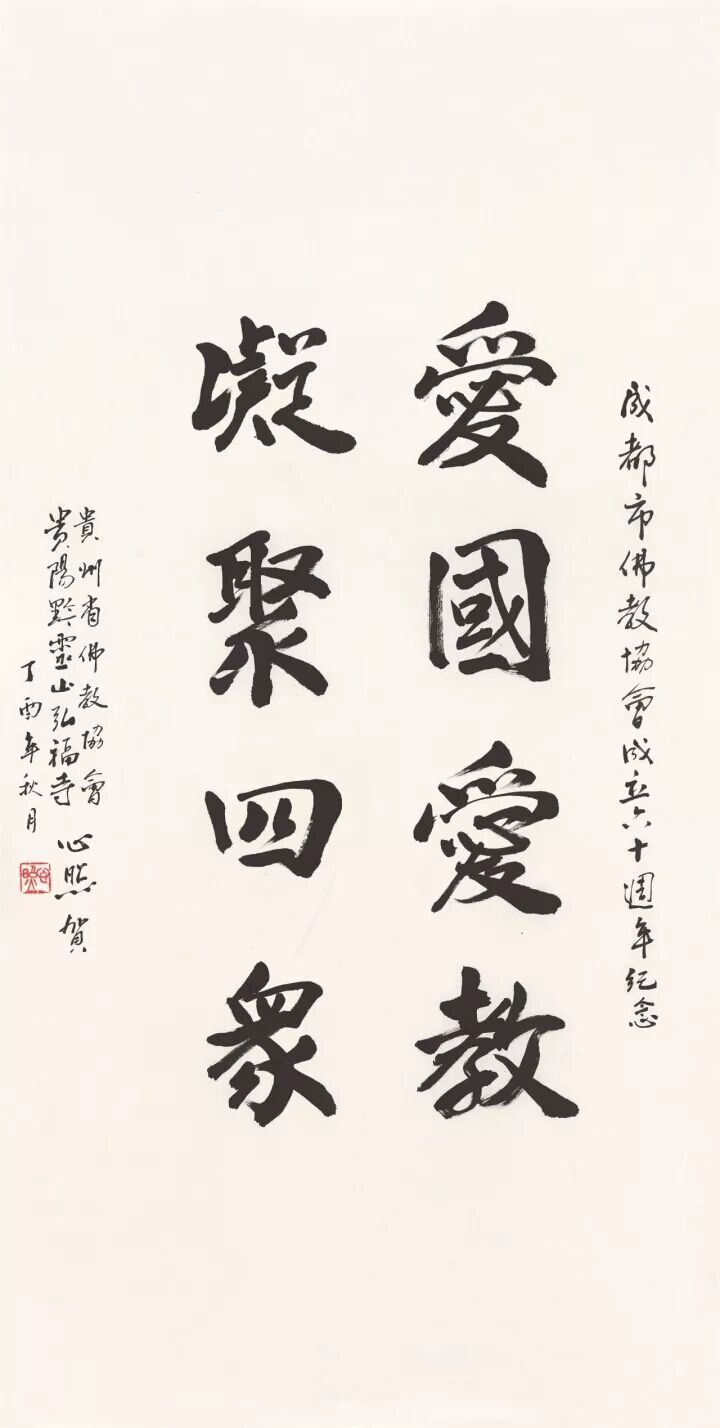 成都市佛教協會成立六十週年纪念
愛國愛教
凝聚四眾
貴州省佛教協會
貴陽黔靈山弘福寺 心照賀
丁酉年秋月